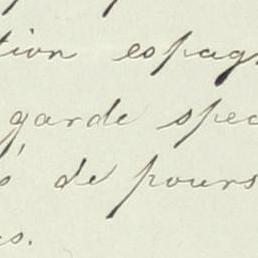 tion espag
garde spec
s de pours
s.